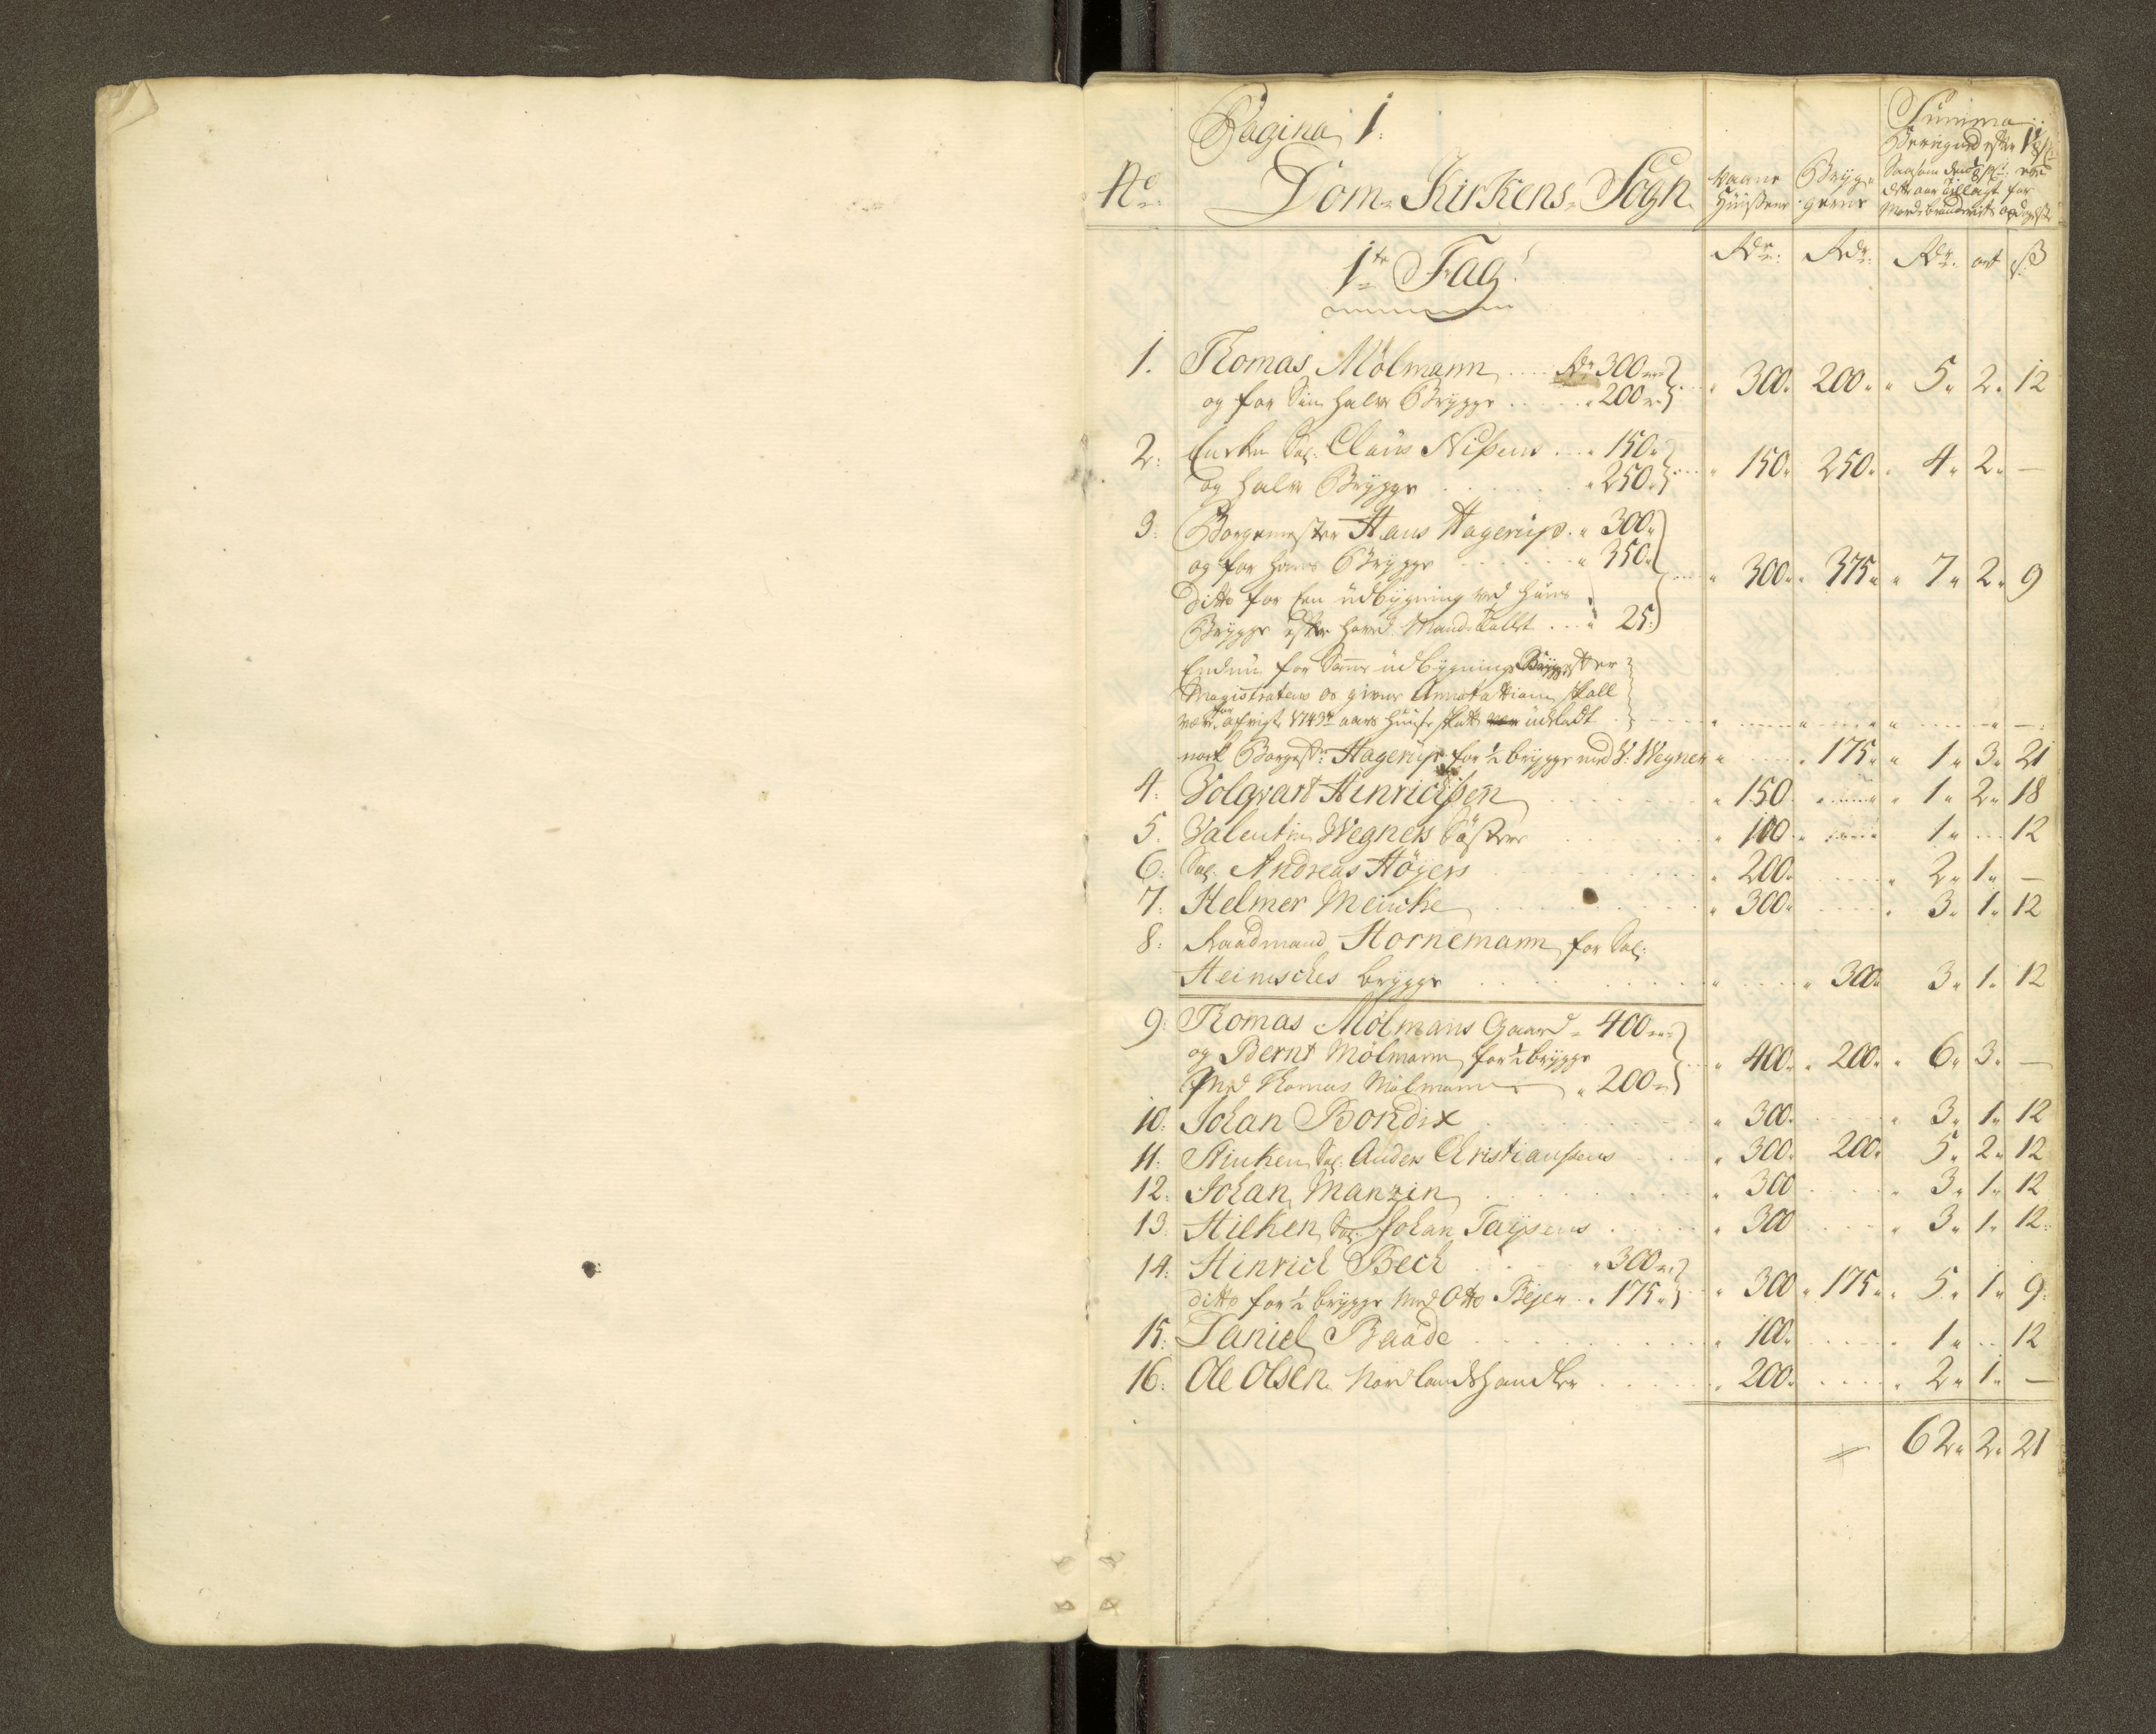 Pagina 1.
No Dom-Kirkens-Sogn Vaane Hüüsene Brÿg-gerne Summa
1te Fag!
Rdr: Rdr: Rdr. ort ß
1. Thomas Mölmann .... Rdr 300
og for Sin halve Brygge .... 200 300. 200. 5. 2. 12
2: Encken Sal: Claüs Nißens ... 150.
og halve Brygge .... 250. 150. 250. 4. 2. —
3. Borgemester Hans Hagerüp. 300.
og for hans Brygge .... 350.
ditto for En üdbygning ved hans 300. 375. 7. 2. 9
Brygge efter 25.
Endnü for Samme üdbygning
Magistratens Annotation skall
1743 aars Hüüse skatt üdeladt
nock Borgestr: Hagerüp for ½ brygge med V: Wegner 175. 1. 3. 21
4. Volqvart Hinrichßen 150 1. 2. 18
5. Valentin Wegners Söstere 100 1. ... 12
6. Sal: Andreas Höyers 200. 2. 1. —
7. Helmer Meincke 300. 3. 1. 12
8: Raadmand Hornemann for Sal:
Heinsches brygge 300. 3. 1. 12
9: Thomas Mölmans Gaard - 400
og Bernt Mölmann for ½ brygge 400. 200. 6. 3. —
Med Thomas Mölmann 200
10: Johan Bondix 300. 3. 1. 12
11: Sal: Anders Christianßens 300. 200. 5. 2. 12
12. Johan Manzin 300 3. 1. 12
13. Sal: Johan Taÿsens 300 3. 1. 12.
14: Hinrich Bech 300
ditto for ½ brygge Med Otto Bejer 175. 300 175. 5. 1. 9.
15. Daniel Baade 100. 1. .. 12
16: Ole Olsen Nordlandshandler 200. 2. 1. —
62. 2. 21